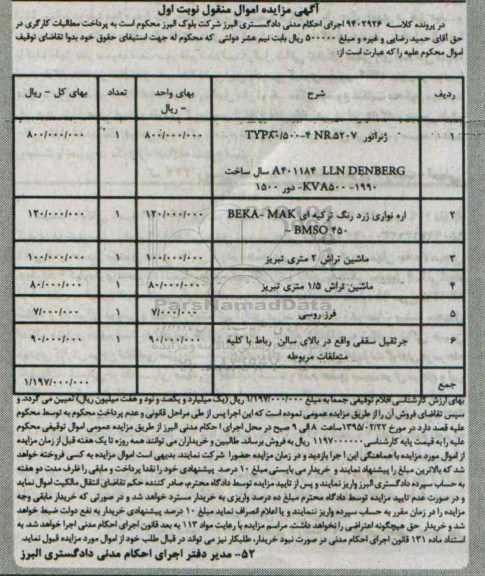 آگهی مزایده اموال منقول نوبت اول
در پرونده کلاسه ۹۴۰۲۹۲۶ اجرای احکام مدنی دادگستری البرز شرکت بلوک البرز محکوم است به پرداخت مطالبات کارگری در
حق آقای حمید رضایی و غیره و مبلغ ۵۰۰۰۰۰ ریال بابت نیم عشر دولتی که محکوم له جهت استیفای حقوق خود بدوا تقاضای توقیف
اموال محکوم علیه را که عبارت است از:
ردیف شرح بهای واحد – ریال تعداد بهای کل – ریال
۱ ژنراتور TYPX/۵۰۰-۴ NR۵۲۰۷ ۸۰۰/۰۰۰/۰۰۰ ۱ ۸۰۰/۰۰۰/۰۰۰
A۴۰۱۱۸۴ LLN DENBERG سال ساخت
۱۹۹۰- KVA۵۰۰- دور ۱۵۰۰
۲ اره نواری زرد رنگ ترکیه ای BEKA- MAK ۱۲۰/۰۰۰/۰۰۰ ۱ ۱۲۰/۰۰۰/۰۰۰
– BMSO ۴۵۰
۳ ماشین تراش ۲ متری تبریز ۱۰۰/۰۰۰/۰۰۰ ۱ ۱۰۰/۰۰۰/۰۰۰
۴ ماشین تراش ۱/۵ متری تبریز ۸۰/۰۰۰/۰۰۰ ۱ ۸۰/۰۰۰/۰۰۰
ParsNamadData
۵ فرز روسی ۷/۰۰۰/۰۰۰ ۱ ۷/۰۰۰/۰۰۰
۶ جرثقیل سقفی واقع در بالای سالن رباط با کلیه ۹۰/۰۰۰/۰۰۰ ۱ ۹۰/۰۰۰/۰۰۰
متعلقات مربوطه
جمع ۱/۱۹۷/۰۰۰/۰۰۰
بهای ارزش کارشناسی اقلام توقیفی جمعا به مبلغ ۱/۱۹۷/۰۰۰/۰۰۰ ریال (یک میلیارد و یکصد و نود و هفت میلیون ریال) تعیین می گردد. و
سپس تقاضای فروش آن را از طریق مزایده عمومی نموده است که این اجرا پس از طی مراحل قانونی و عدم پرداخت محکوم به توسط محکوم
علیه قصد دارد در مورخ ۱۳۹۵/۰۲/۲۲ ساعت ۸ الی ۹ صبح در محل اجرای احکام مدنی البرز از طریق مزایده عمومی اموال توقیفی محکوم
علیه را به قیمت پایه کارشناسی ۱۱۹۷۰۰۰۰۰۰ ریال به فروش برساند. طالبین و خریداران می توانند همه روزه تا یک هفته قبل از زمان مزایده
از اموال مورد مزایده با هماهنگی این اجرا بازدید و در زمان مزایده حضورا شرکت نمایند. بدیهی است اموال مزایده به کسی فروخته خواهد
شد که بالاترین مبلغ را پیشنهاد نمایند و خریدار می بایستی مبلغ ۱۰ درصد پیشنهادی خود را نقدا پرداخت و مابقی را ظرف مدت دو هفته
به حساب سپرده دادگستری البرز واریز نمایند و پس از تایید مزایده توسط دادگاه محترم، صادر کننده حکم تقاضای انتقال مالکیت اموال نماید
و در صورت عدم تایید مزایده توسط دادگاه محترم مبلغ ده درصد واریزی به خریدار مسترد خواهد شد و در صورتی که خریدار مابقی وجه
مزایده را در زمان مقرر به حساب سپرده واریز ننمایند و یا اعلام انصراف نماید مبلغ ۱۰ درصد پیشنهادی خریدار به نفع دولت ضبط خواهد
شد و خریدار حق هیچگونه اعتراضی را نخواهد داشت. مراسم مزایده با رعایت مواد ۱۱۳ به بعد قانون اجرای احکام مدنی اجرا خواهد شد. به
استناد ماده ۱۳۱ قانون اجرای احکام مدنی در صورت نبود خریدار، طلبکار نیز می تواند در قبال طلب خود از اموال مورد مزایده قبول نماید.
۵۲- مدیر دفتر اجرای احکام مدنی دادگستری البرز